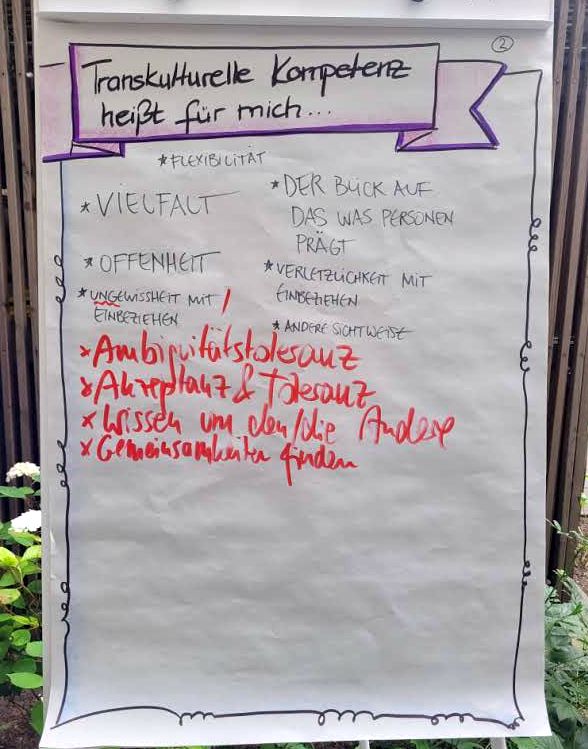 2
Transkulturelle Kompetenz
heißt für mich...
* FLEXIBILITÄT
* VIELFALT
* DER BLICK AUF
DAS WAS PERSONEN
PRÄGT
* OFFENHEIT
* VERLETZLICHKEIT MIT
EINBEZIEHEN
* UNGEWISSHEIT MIT
EINBEZIEHEN
* ANDERE SICHTWEISE
* Ambiguitätstoleranz
* Akzeptanz & Toleranz
* Wissen um den/die Andere
* Gemeinsamkeiten finden